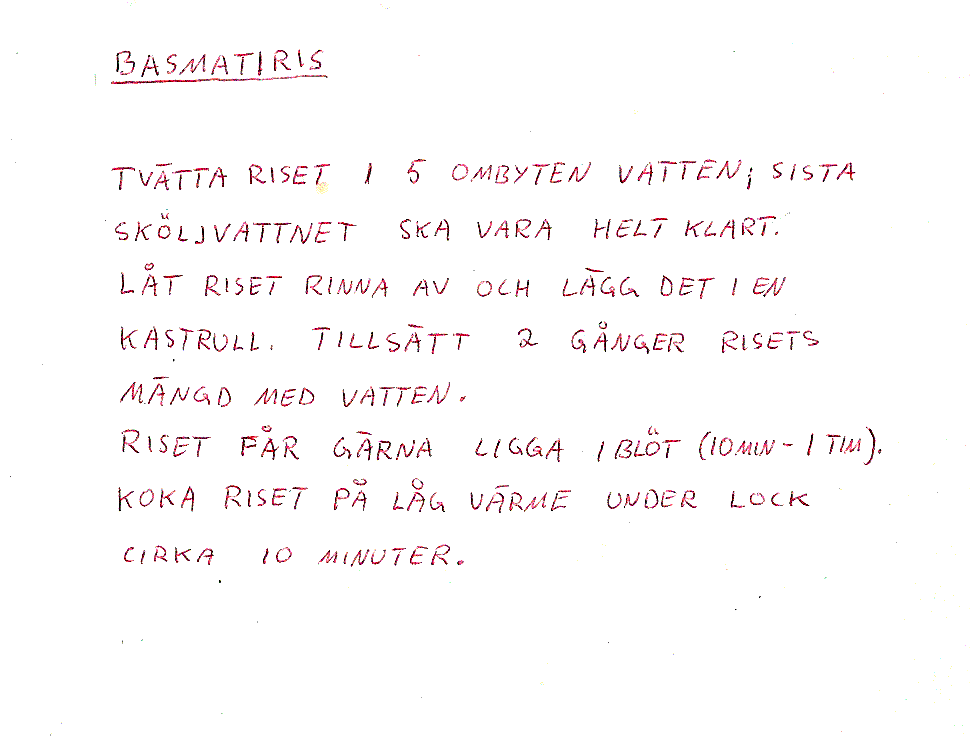 BASMATIRIS
TVÄTTA RISET I 5 OMBYTEN VATTEN; SISTA
SKÖLJVATTNET SKA VARA HELT KLART.
LÅT RISET RINNA AV OCH LÄGG DET I EN
KASTRULL. TILLSÄTT 2 GÅNGER RISETS
MÄNGD MED VATTEN.
RISET FÅR GÄRNA LIGGA I BLÖT (10 MIN - 1 TIM).
KOKA RISET PÅ LÅG VÄRME UNDER LOCK
CIRKA 10 MINUTER.